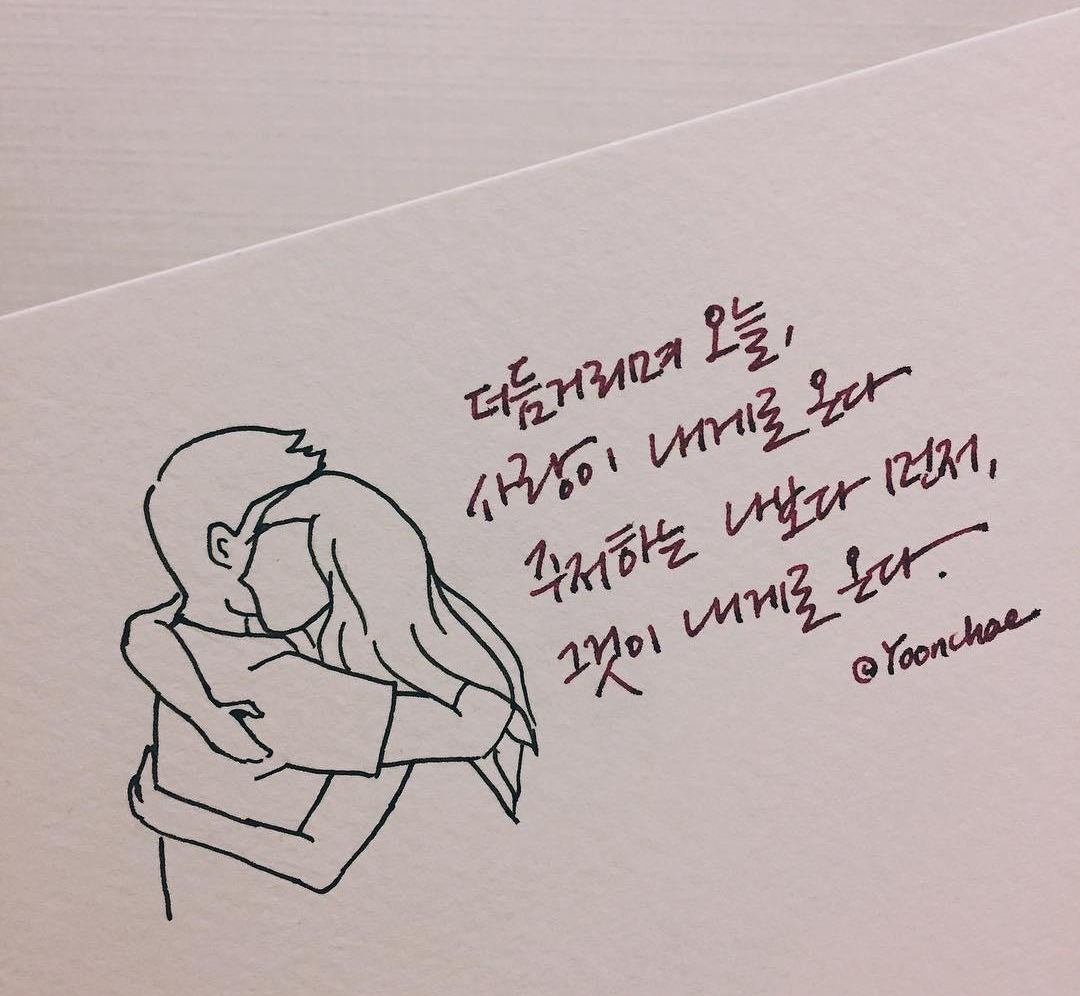 더듬거리며 오늘,
사랑이 내게로 온다
주저하는 나보다 먼저,
그것이 내게로 온다.
@Yoonchae